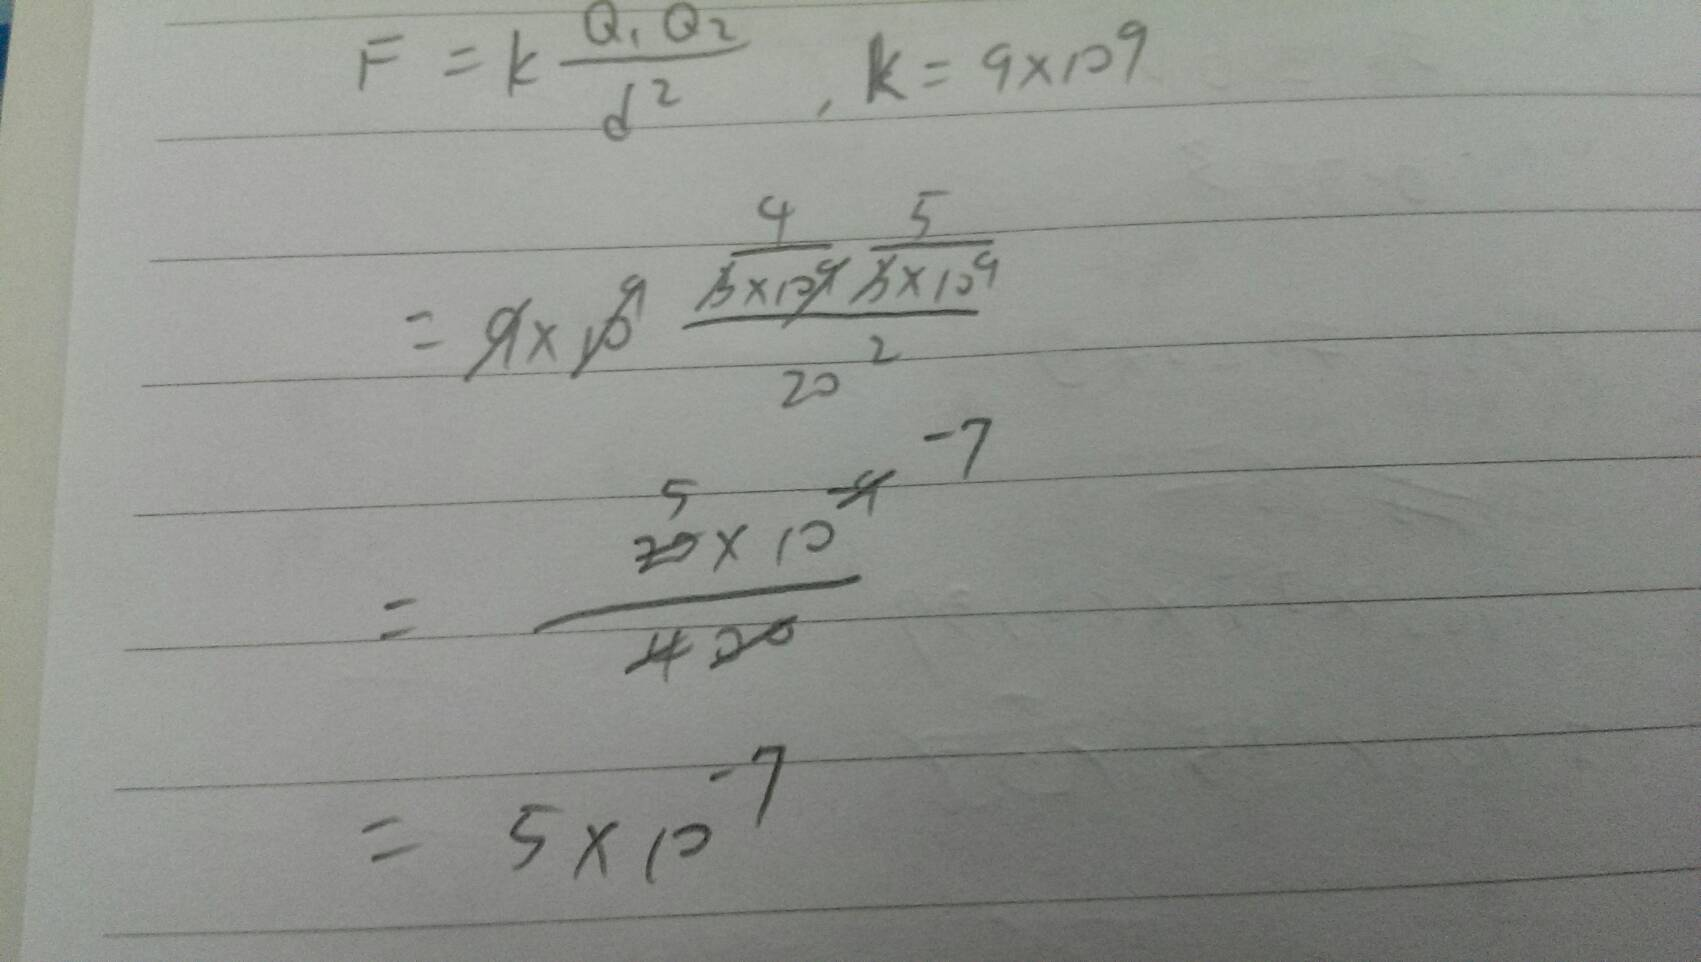 F = k Q₁Q₂ / d² , k = 9×10⁹
= 9×10⁹ (4 / 3×10⁹)(5 / 3×10⁹) / 20²
= 5 20×10⁻⁹ ⁻⁷ / 400
= 5×10⁻⁷